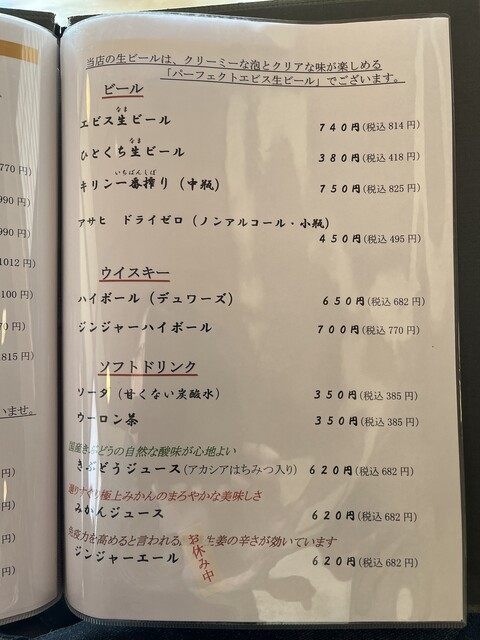 当店の生ビールは、クリーミーな泡とクリアな味が楽しめる
「パーフェクトエビス生ビール」でございます。
ビール
なま
エビス生ビール 740円(税込814円)
なま
ひとくち生ビール 380円(税込418円)
いちばんしぼ
キリン一番搾り(中瓶) 750円(税込825円)
アサヒ ドライゼロ(ノンアルコール・小瓶)
450円(税込495円)
ウイスキー
ハイボール(デュワーズ) 650円(税込682円)
ジンジャーハイボール 700円(税込770円)
ソフトドリンク
ソーダ(甘くない炭酸水) 350円(税込385円)
ウーロン茶 350円(税込385円)
国産きぶどうの自然な酸味が心地よい
きぶどうジュース(アカシアはちみつ入り) 620円(税込682円)
極上みかんのまろやかな美味しさ
みかんジュース 620円(税込682円)
免疫力を高めると言われる、生姜の辛さが効いています
ジンジャーエール 620円(税込682円)
お休み中
770円)
990円)
990円)
1012円)
100円)
70円)
815円)
いませ。
円)
円)
円)
円)